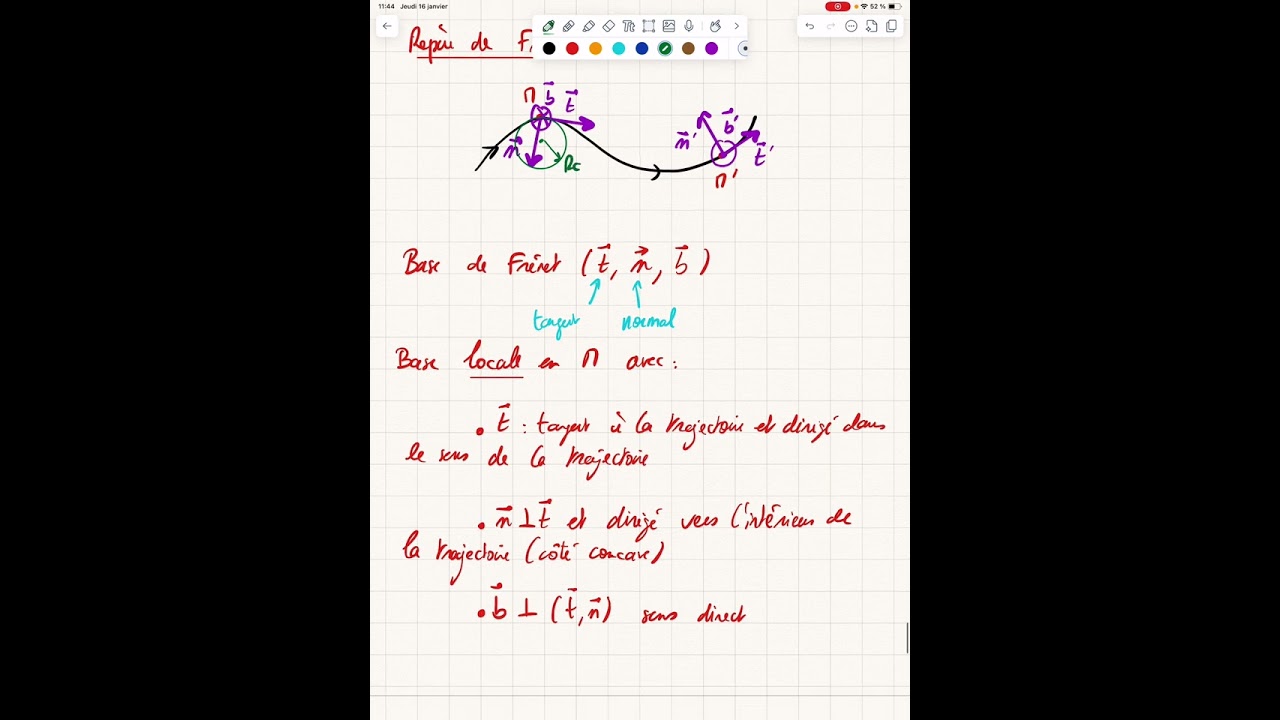 11:44 Jeudi 16 janvier 52 %
Repère de F
M b⃗ t⃗
n⃗ Rc
n⃗' b⃗' t⃗'
M'
Base de Frénet (t⃗, n⃗, b⃗)
tangent normal
Base locale en M avec :
• t⃗ : tangent à la trajectoire et dirigé dans
le sens de la trajectoire
• n⃗ ⊥ t⃗ et dirigé vers l'intérieur de
la trajectoire (côté concave)
• b⃗ ⊥ (t⃗, n⃗) sens direct